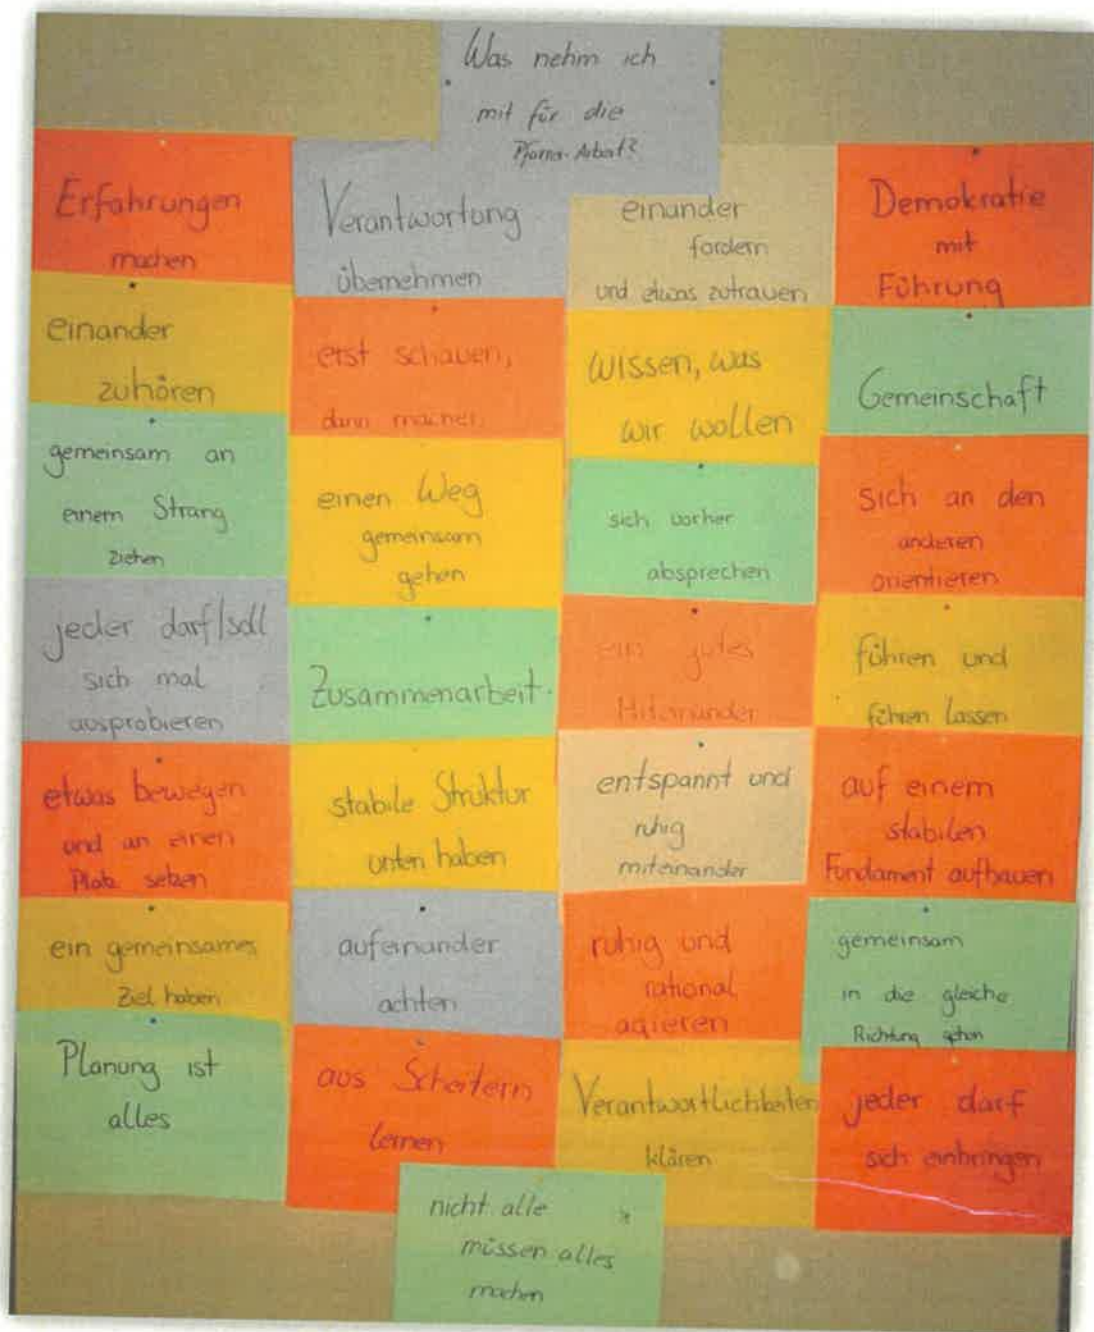 Was nehm ich
mit für die
Pfarrei-Arbeit?
Erfahrungen
machen
einander
zuhören
gemeinsam an
einem Strang
ziehen
jeder darf/soll
sich mal
ausprobieren
etwas bewegen
und an einen
Platz setzen
ein gemeinsames
Ziel haben
Planung ist
alles
Verantwortung
übernehmen
erst schauen,
dann machen
einen Weg
gemeinsam
gehen
Zusammenarbeit
stabile Struktur
unten haben
aufeinander
achten
aus Scheitern
lernen
einander
fordern
und etwas zutrauen
wissen, was
wir wollen
sich vorher
absprechen
ein gutes
Miteinander
entspannt und
ruhig
miteinander
ruhig und
rational
agieren
Verantwortlichkeiten
klären
Demokratie
mit
Führung
Gemeinschaft
sich an den
anderen
orientieren
führen und
führen lassen
auf einem
stabilen
Fundament aufbauen
gemeinsam
in die gleiche
Richtung gehen
jeder darf
sich einbringen
nicht alle
müssen alles
machen